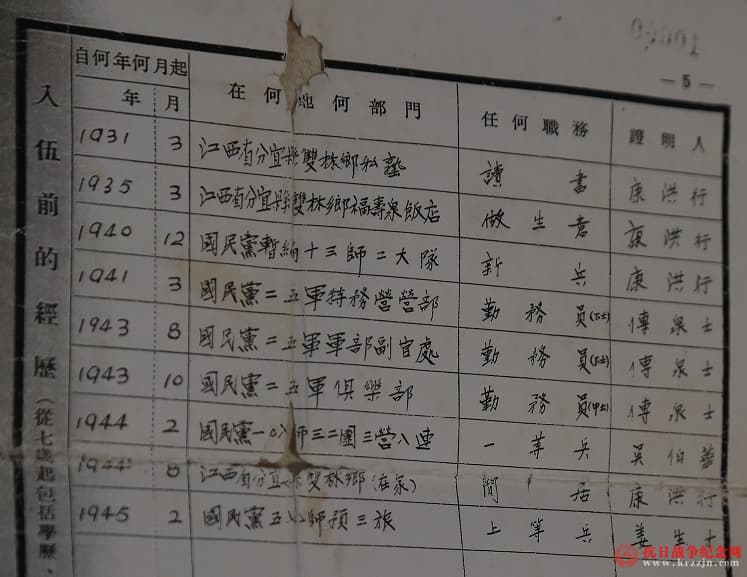 00001
— 5 —
入伍前的經歷（從七歲起包括學歷，
自何年何月起 在何地何部門 任何職務 證明人
年 月
1931 3 江西省分宜縣雙林鄉私塾 讀書 康洪行
1935 3 江西省分宜縣雙林鄉福壽泉飯店 做生意 康洪行
1940 12 國民黨暫編十三師二大隊 新兵 康洪行
1941 3 國民黨二五軍特務營營部 勤務員(下士) 傅泉士
1943 8 國民黨二五軍軍部副官處 勤務員(下士) 傅泉士
1943 10 國民黨二五軍俱樂部 勤務員(中士) 傅泉士
1944 2 國民黨一〇八師三二團三營八連 一等兵 吳伯
1944 8 江西省分宜縣雙林鄉(在家) 閒居 康洪行
1945 2 國民黨五八師預三旅 上等兵 姜生士
抗日战争纪念网
www.krzzjn.com